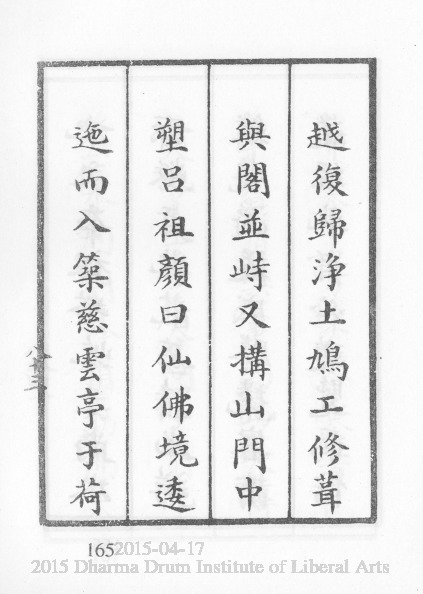 越復歸淨土鳩工修葺
與閣並峙又搆山門中
塑吕祖顏曰仙佛境逶
迤而入築慈雲亭于荷
八十三
165
2015-04-17
2015 Dharma Drum Institute of Liberal Arts